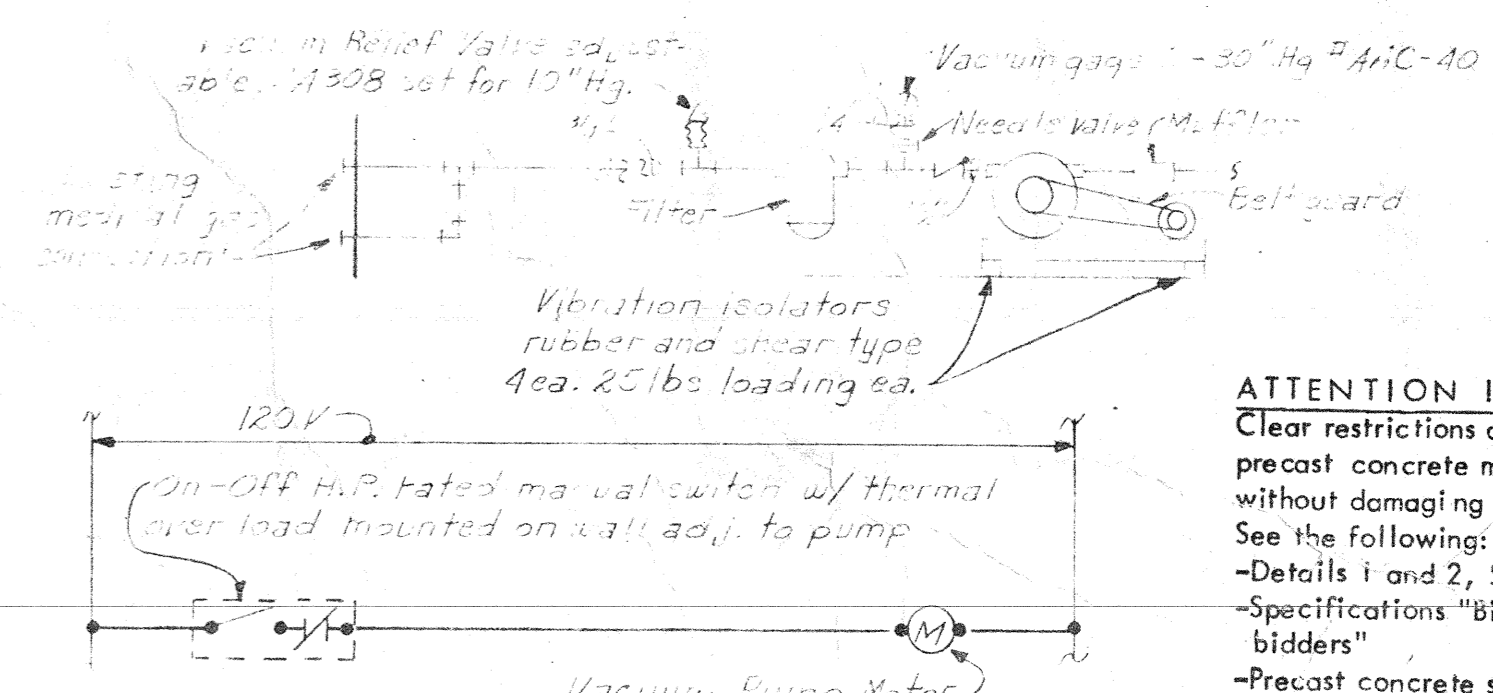 Relief Valve adjust-
able. A308 set for 10" Hg.
Vacuum gage - 30" Hg # AriC-40
Needle valve Muffler
medical gas
Filter
Belt guard
Vibration isolators
rubber and shear type
4 ea. 25 lbs loading ea.
120 V
On-Off H.P. rated manual switch w/ thermal
over load mounted on wall adj. to pump
M
Vacuum Pump Motor
ATTENTION
Clear restrictions
precast concrete
without damaging
See the following:
-Details 1 and 2,
-Specifications
bidders"
-Precast concrete